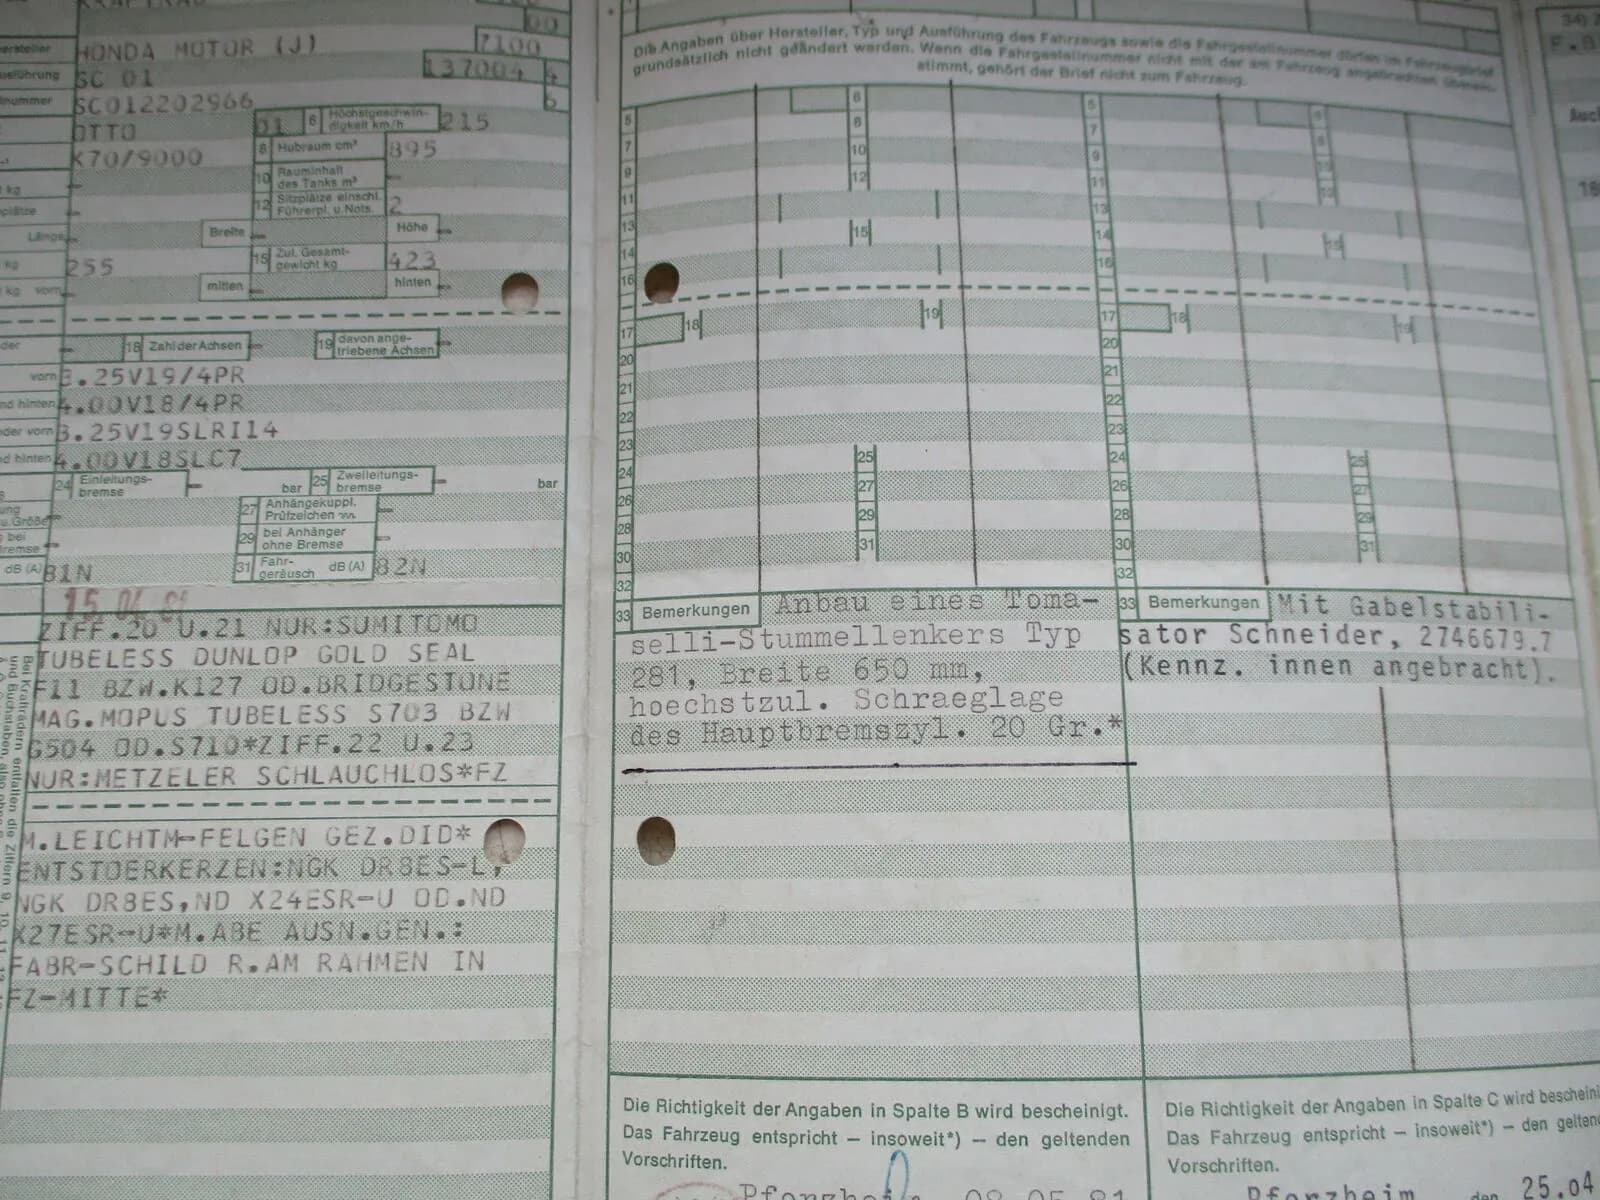 KRAFTRAD
00
Hersteller HONDA MOTOR (J) 7100
SC 01 137004 4
nummer SC012202966 6
OTTO 01 6 Höchstgeschwin-
digkeit km/h 215
K70/9000 8 Hubraum cm³ 895
kg – 10 Rauminhalt
des Tanks m³ –
– 12 Sitzplätze einschl.
Führerpl. u. Nots. 2
Länge – Breite – Höhe –
kg 255 15 Zul. Gesamt-
gewicht kg 423
kg vorn – mitten – hinten –
– 18 Zahl der Achsen – 19 davon ange-
triebene Achsen –
vorn 3.25V19/4PR
hinten 4.00V18/4PR
vorn 3.25V19SLRI14
hinten 4.00V18SLC7
24 Einleitungs-
bremse – bar 25 Zweileitungs-
bremse – bar
u. Größe – 27 Anhängekuppl.
Prüfzeichen –
– 29 bei Anhänger
ohne Bremse –
dB (A) 81N 31 Fahr-
geräusch dB (A) 82N
ZIFF.20 U.21 NUR:SUMITOMO
TUBELESS DUNLOP GOLD SEAL
F11 BZW.K127 OD.BRIDGESTONE
MAG.MOPUS TUBELESS S703 BZW
G504 OD.S710*ZIFF.22 U.23
NUR:METZELER SCHLAUCHLOS*FZ
M.LEICHTM-FELGEN GEZ.DID*
ENTSTOERKERZEN:NGK DR8ES-L,
NGK DR8ES,ND X24ESR-U OD.ND
X27ESR-U*M.ABE AUSN.GEN.:
FABR-SCHILD R.AM RAHMEN IN
FZ-MITTE*
Die Angaben über Hersteller, Typ und Ausführung des Fahrzeugs sowie die Fahrgestellnummer dürfen im Fahrzeugbrief
grundsätzlich nicht geändert werden. Wenn die Fahrgestellnummer nicht mit der am Fahrzeug angebrachten überein-
stimmt, gehört der Brief nicht zum Fahrzeug.
5 6
7 8
9 10
11 12
13
14 15
16
17 18 19
20
21
22
23
24 25
26 27
28 29
30 31
32
33 Bemerkungen Anbau eines Toma-
selli-Stummellenkers Typ
281, Breite 650 mm,
hoechstzul. Schraeglage
des Hauptbremszyl. 20 Gr.*
Die Richtigkeit der Angaben in Spalte B wird bescheinigt.
Das Fahrzeug entspricht – insoweit*) – den geltenden
Vorschriften.
Pforzheim
5
7
9
11
13
14 15
16
17 18 19
20
21
22
23
24 25
26 27
28 29
30 31
32
33 Bemerkungen Mit Gabelstabili-
sator Schneider, 2746679.7
(Kennz. innen angebracht).
Die Richtigkeit der Angaben in Spalte C wird
Das Fahrzeug entspricht – insoweit*) – den
Vorschriften.
Pforzheim den 25.04